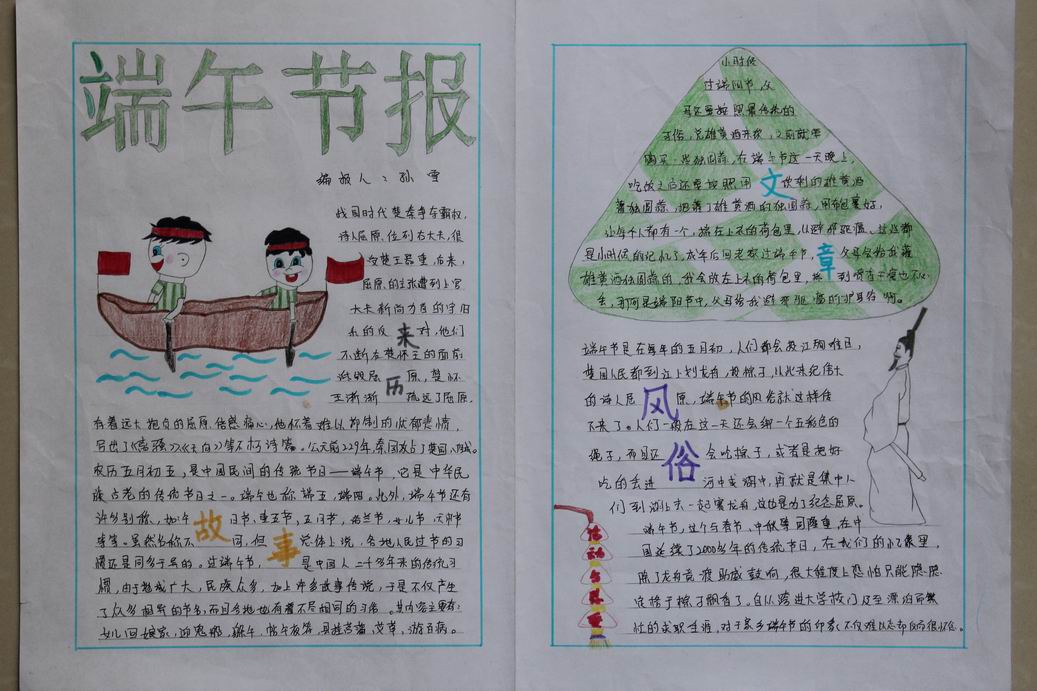 端午节报
编报人：孙雪
战国时代楚秦争夺霸权，
诗人屈原位列右大夫，很
受楚王器重，后来，
屈原的主张遭到上官
大夫靳尚为首的守旧
来
对，他们
不断在楚怀王的面前
历
原，楚怀
王渐渐
疏远了屈原，
有着远大抱负的屈原倍感痛心，他怀着难以抑制的忧郁悲情，
写出了《离骚》《天问》等不朽诗篇。公元前229年，秦国攻占了楚国八城。
农历五月初五，是中国民间的传统节日——端午节，它是中华民
族古老的传统节日之一。端午也称端五，端阳。此外，端午节还有
许多别称，如：午
故
日节，重五节，五月节，浴兰节，女儿节
等等。虽然名称不
同，但
事
总体上说，各地人民过节的习
俗还是同多于异的。过端午节，
是中国人二千多年来的传统习
惯，由于地域广大，民族众多，加上许多故事传说，于是不仅产生
了众多相异的节名，而且各地也有着不尽相同的习俗。其内容主要有：
女儿回娘家，迎鬼船，躲午，帖午叶符，悬挂菖蒲，艾草，游百病。
小时候
过端阳节，父
母还要按照最传统的
习俗，
购买一些独囫蒜，在端午节这一天晚上，
吃饭之后还要按照用
文
饮剩的雄黄酒
让每个人都有一个，揣在上衣的荷包里，
是小时候的记忆了，成年后回老家过端午节，
章
父母会给我
雄黄酒独囫蒜的，我会放在上衣的荷包里，
端午节是在每年的五月初，人们都会投江殉难日，
楚国人民都到江上划龙舟，投粽子，以此来纪念伟大
的诗人屈
风
原，端午节的风俗就这样传
下来了。人们一般在这一天还会绑一个五彩色的
绳子，而且还
俗
会吃粽子，或者是把好
吃的丢进
河中或湖中，再就是集中人
们到湖上去一起赛龙舟，这也是为了纪念屈原。
端午节，这个与春节、中秋等同隆重，在中
国延续了2000多年的传统节日，在我们的记忆里，
除了龙舟竞渡助威鼓响，很大程度上恐怕只能隐隐
定格于粽子飘香了。自从跨进大学校门及至漂泊而繁
忙的求职生涯，对于家乡端午节的印象不仅难以忘却反而很怀念。